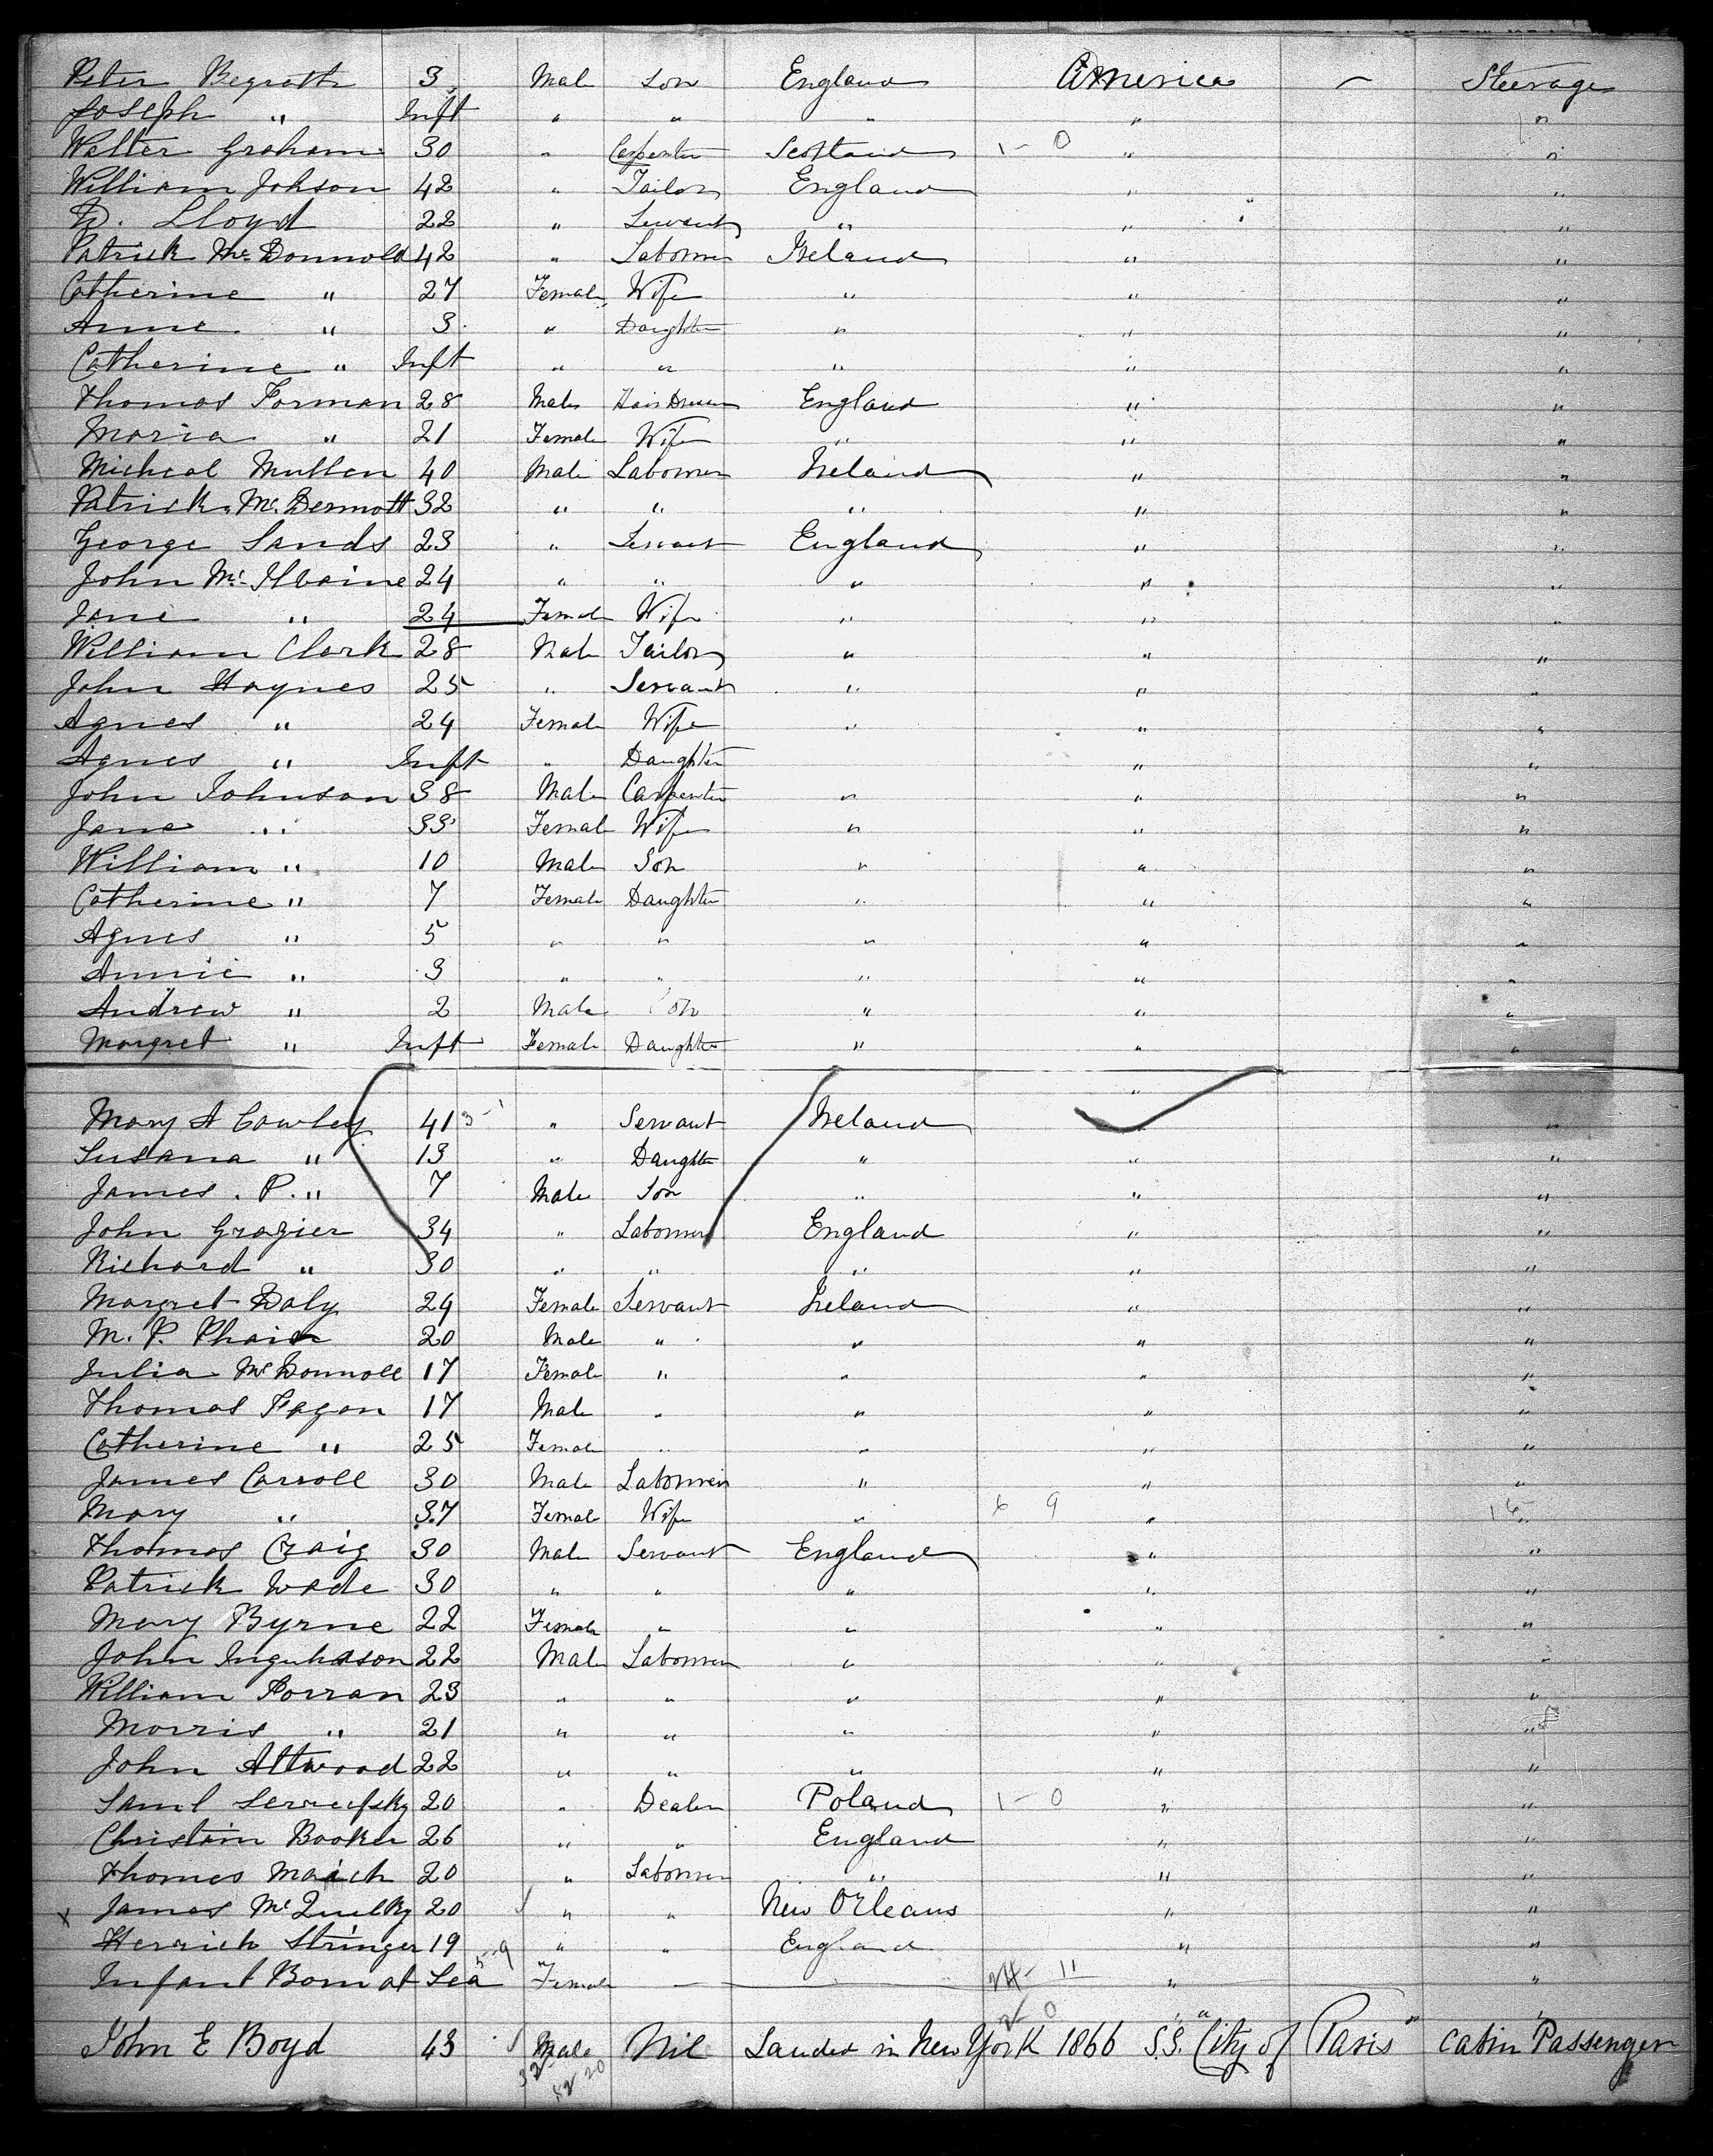 Peter Begroth 3 Male Son England America – Steerage
Joseph " Inft " " " " "
Walter Graham 30 " Carpenter Scotland 1 - 0 " "
William Johson 42 " Tailor England " "
D. Lloyd 22 " Servant " " "
Patrick McDonnold 42 " Labourer Ireland " "
Catherine " 27 Female Wife " " "
Anne " 3 " Daughter " " "
Catherine " Inft " " " " "
Thomas Forman 28 Male Hair Dresser England " "
Maria " 21 Female Wife " " "
Micheal Mullen 40 Male Labourer Ireland " "
Patrick McDermott 32 " " " " "
George Sands 23 " Servant England " "
John McIlvaine 24 " " " " "
Jane " 24 Female Wife " " "
William Clark 28 Male Tailor " " "
John Haynes 25 " Servant " " "
Agnes " 24 Female Wife " " "
Agnes " Inft " Daughter " "
John Johnson 38 Male Carpenter " " "
Jane " 33 Female Wife " " "
William " 10 Male Son " " "
Catherine " 7 Female Daughter " " "
Agnes " 5 " " " " "
Annie " 3 " " " " "
Andrew " 2 Male Son " " "
Margret " Inft Female Daughter " " "
"
Mary A Cowley 41 3-1 " Servant Ireland " "
Susana " 13 " Daughter " " "
James. P. " 7 Male Son " " "
John Grazier 34 " Labourer England " "
Richard " 30 " " " " "
Margret Daly 24 Female Servant Ireland " "
M. P. Phair 20 Male " " " "
Julia McDonnoll 17 Female " " " "
Thomas Fagan 17 Male " " " "
Catherine " 25 Female " " " "
James Carroll 30 Male Labourer " " "
Mary " 37 Female Wife " 6 9 " 16
Thomas Craig 30 Male Servant England " "
Patrick Wade 30 " " " " "
Mary Byrne 22 Female " " " "
John 22 Male Labourer " " "
William Forran 23 " " " " "
Morris " 21 " " " " "
John Attwood 22 " " " " "
Saml 20 " Dealer Poland 1 - 0 " "
Christain Booker 26 " " England " "
Thomas March 20 " Labourer " " "
x James 20 " " New Orleans " "
Herrich Stringer 19 " " England " "
Infant Born at Sea 5-9 Female — — 24 - 11 " "
2 0
John E Boyd 43 Male Nil Landed in New York 1866 S.S. "City of Paris" Cabin Passenger
32 12 20